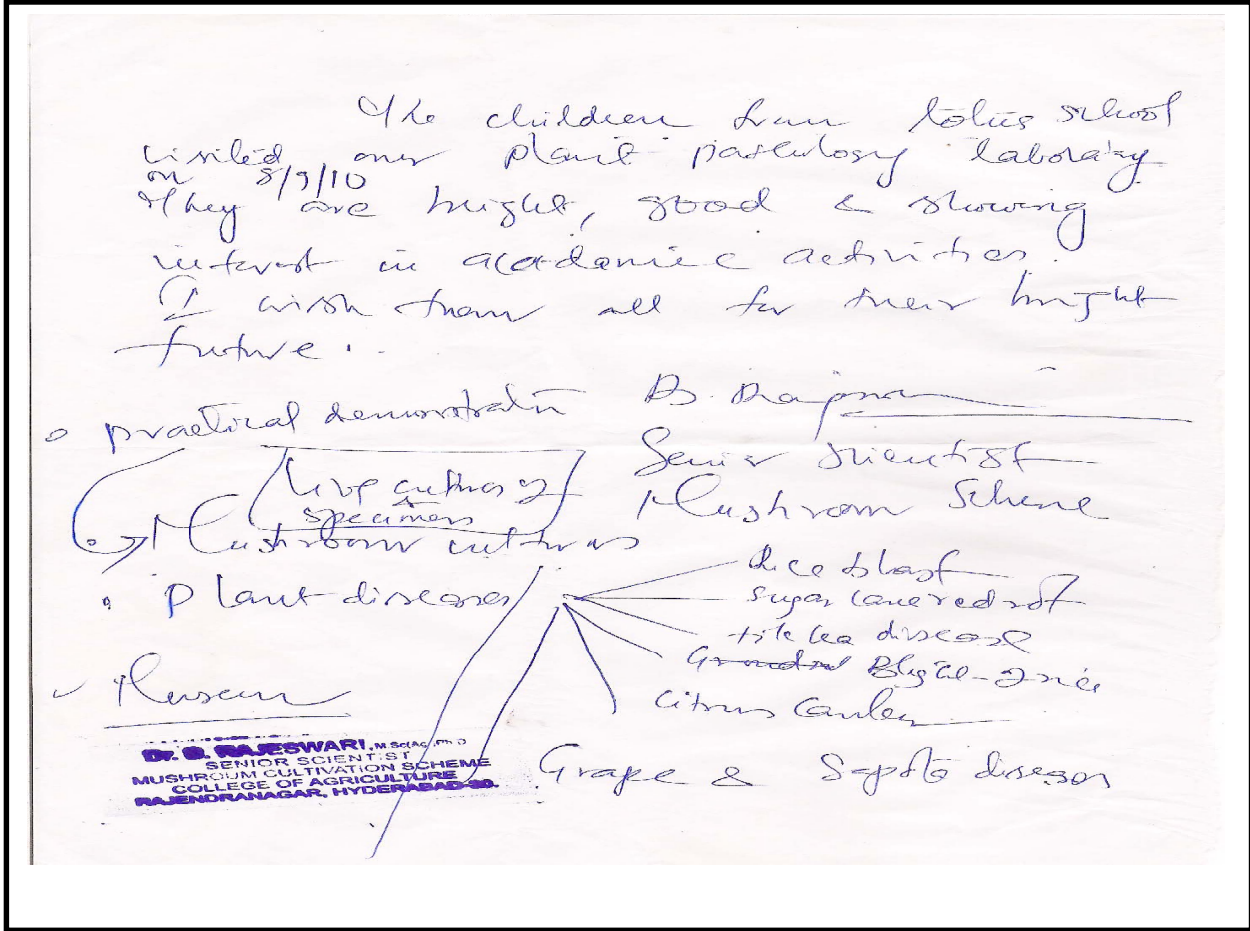 The children from Lotus School
visited our plant pathology laboratory
on 8/9/10
They are bright, good & showing
interest in academic activities.
I wish them all for their bright
future.
B. Rajeswari
Senior Scientist
Mushroom Scheme
practical demonstration
live cultures of
specimens
Mushroom cultures
Plant diseases
Rice blast
Sugarcane red rot
tikka disease
Ground Blight
Citrus Canker
Grape & Sapota diseases
Museum
Dr. B. RAJESWARI, M.Sc(Ag), Ph.D
SENIOR SCIENTIST
MUSHROOM CULTIVATION SCHEME
COLLEGE OF AGRICULTURE
RAJENDRANAGAR, HYDERABAD-30.